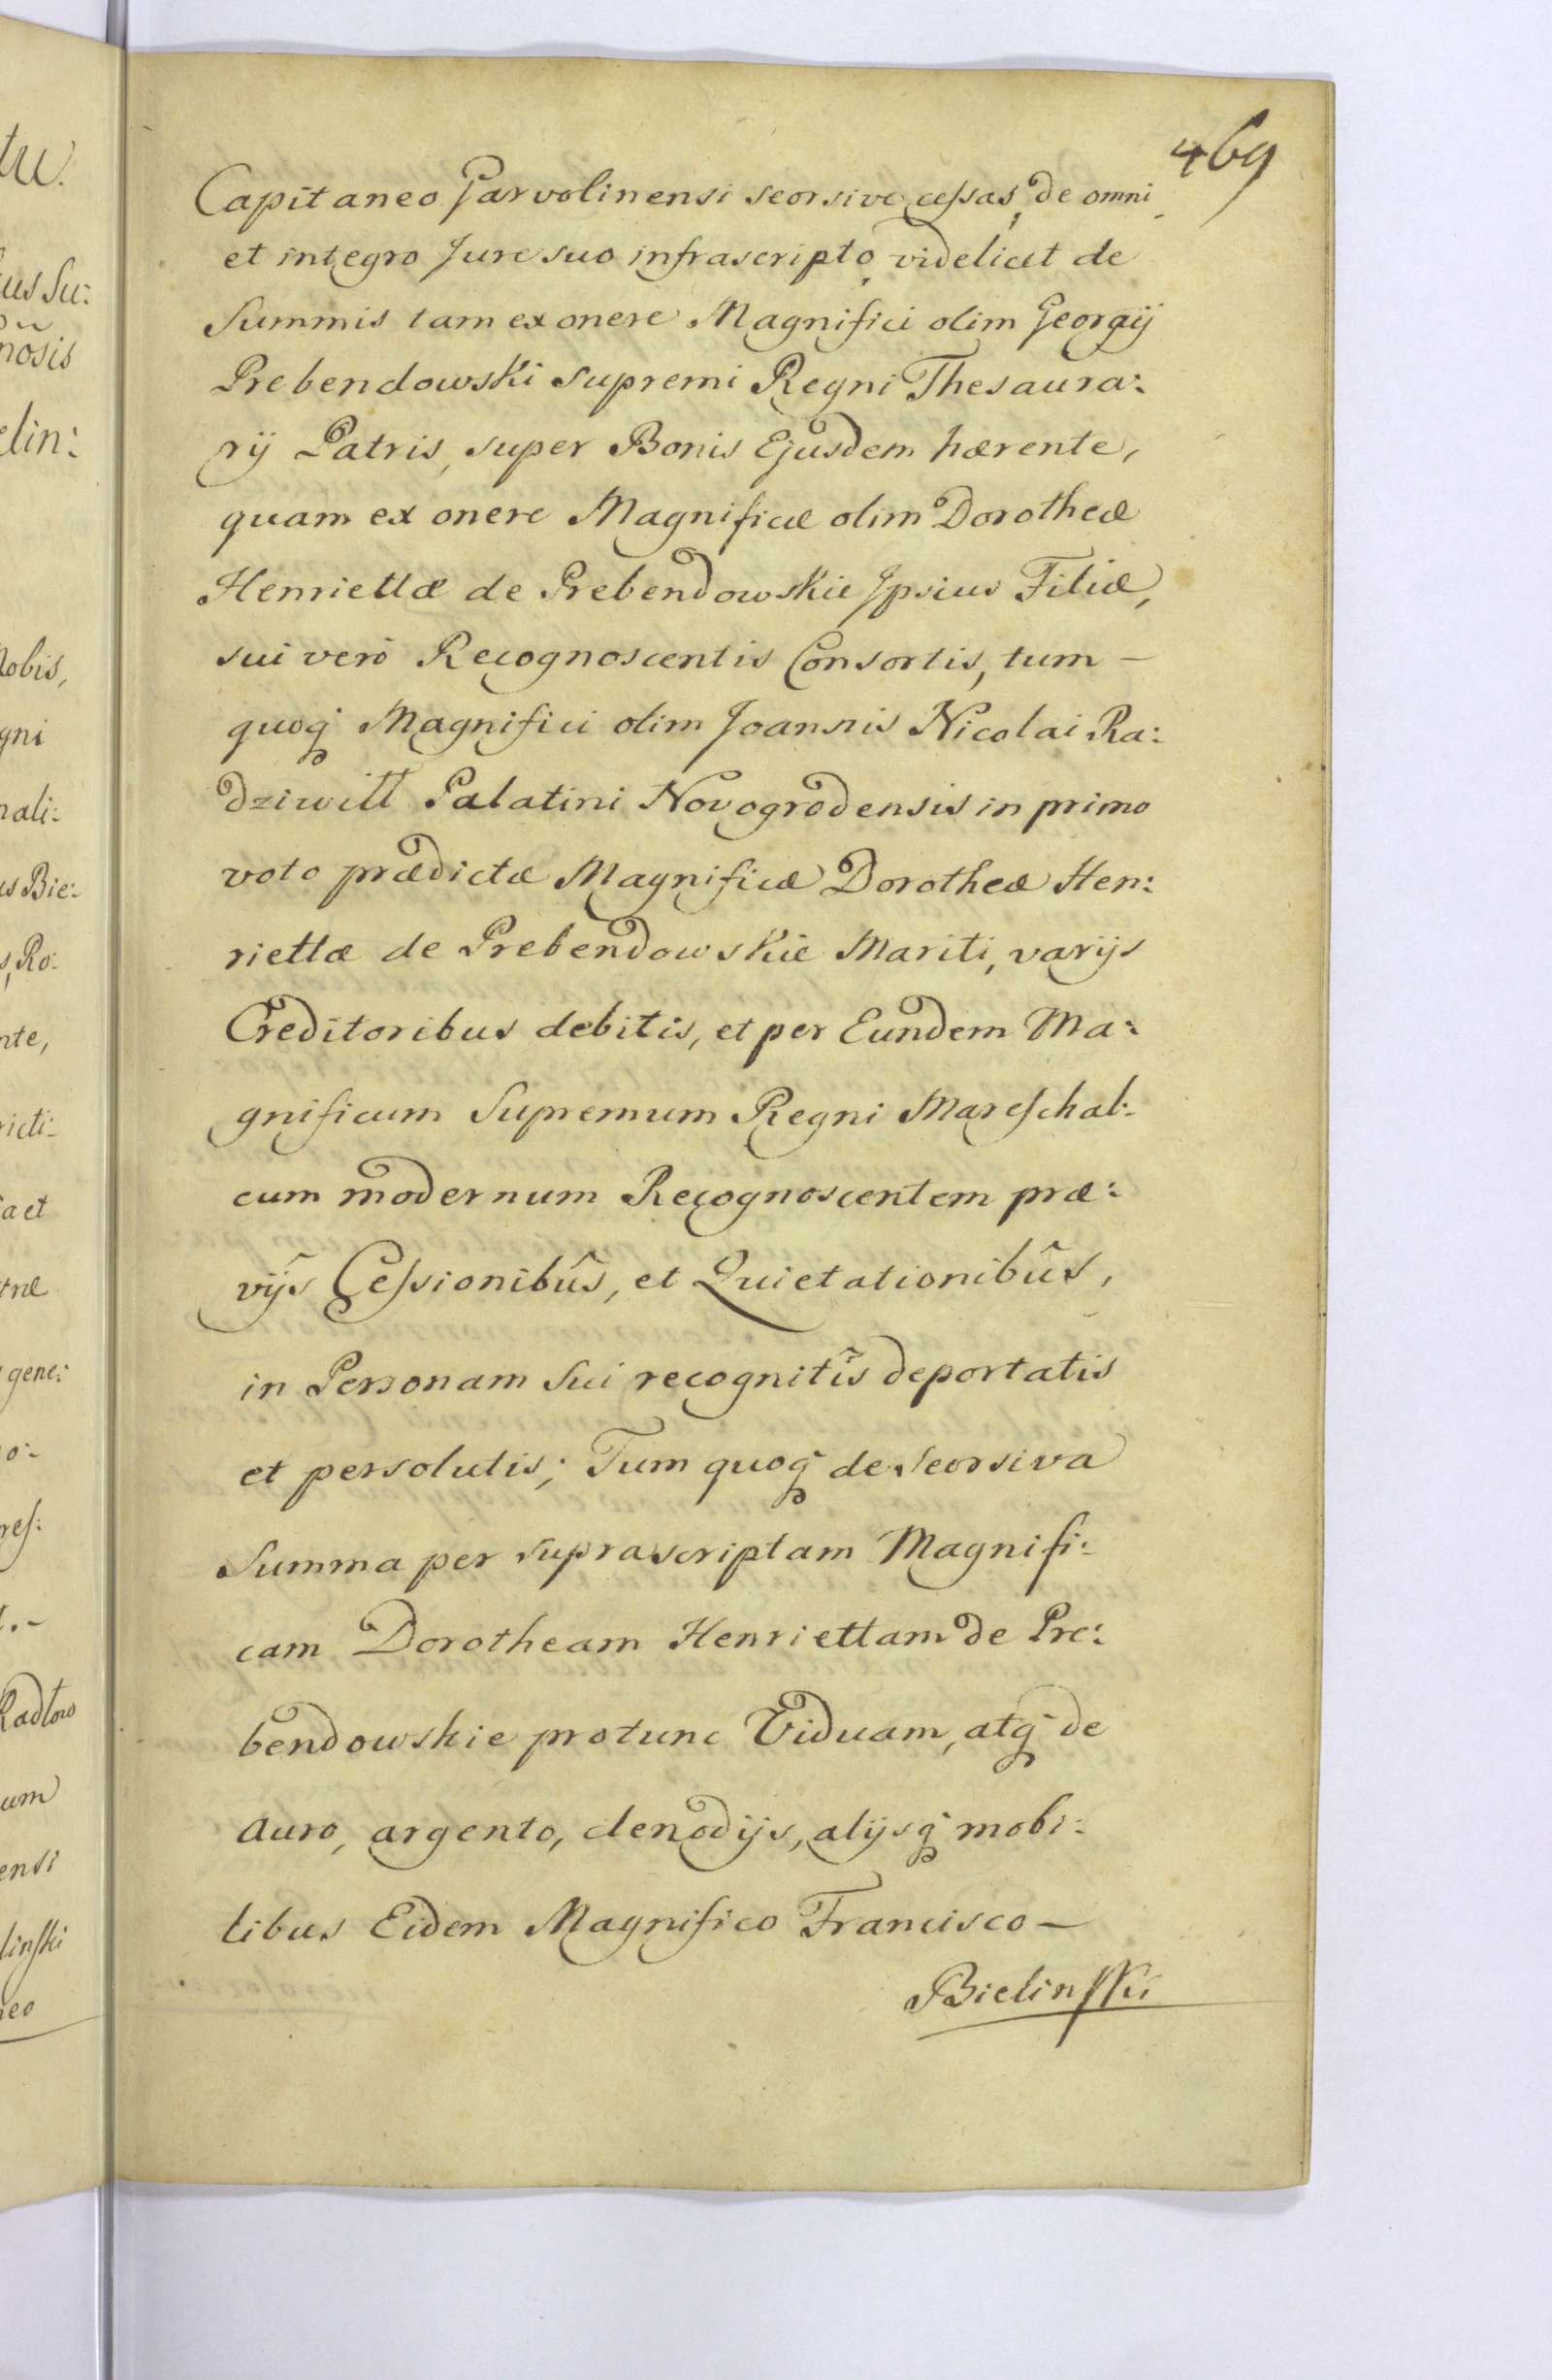 469
Capitaneo Garvolinensi seorsive cessas, de omni
et integro Jure suo infrascripto, videlicet de
Summis tam ex onere Magnifici olim Georgij
Prebendowski Supremi Regni Thesaura:
rij Patris, super Bonis Ejusdem hærente,
quam ex onere Magnificæ olim Dorotheæ
Henriettæ de Prebendowskie Ipsius Filiæ,
sui verò Recognoscentis Consortis, tum —
quoq́ Magnifici olim Joannis Nicolai Ra:
dziwiłł Palatini Novogrodensis in primo
voto prædictæ Magnificæ Dorotheæ Hen:
riettæ de Prebendowskie Mariti, varijs
Creditoribus debitis, et per Eundem Ma:
gnificum Supremum Regni Mareschal:
cum modernum Recognoscentem præ:
vijs Cessionibûs, et Quietationibûs,
in Personam Sui recognitîs deportatis
et persolutis; Tum quoq́ de Seorsiva
Summa per suprascriptam Magnifi:
cam Dorotheam Henriettam de Pre:
bendowskie protunc Viduam, atq́ de
auro, argento, clenodijs, alijsq́ mobi:
libus Eidem Magnifico Francisco —
Bielinsski